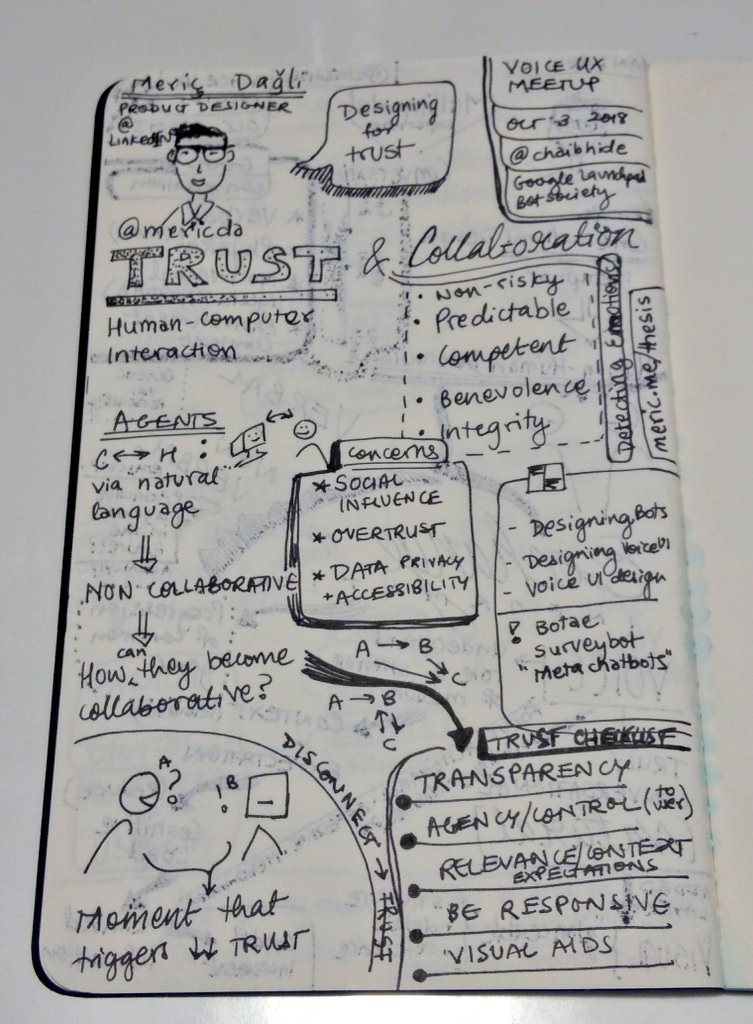 Meriç Dağli
PRODUCT DESIGNER
@
LINKEDIN
@mericda
Designing
for
trust
VOICE UX
MEETUP
OCT 3 2018
@chaibhide
Google Launchpad
Bot Society
TRUST & Collaboration
Human-computer
Interaction
• Non-risky
• Predictable
• Competent
• Benevolence
• Integrity
Detecting Emotions
meric.me/thesis
AGENTS
C ↔ H :
via "natural"
language
⇓
NON COLLABORATIVE
⇓
How can they become
collaborative?
concerns
* SOCIAL
INFLUENCE
* OVERTRUST
* DATA PRIVACY
+ ACCESSIBILITY
- Designing Bots
- Designing Voice UI
- Voice UI design
Botae
Surveybot
"Metachatbots"
A → B
C
A → B
C
DISCONNECT → TRUST
A
?
! B
Moment that
triggers ↓↓ TRUST
TRUST CHECKLIST
TRANSPARENCY
AGENCY/CONTROL (to user)
RELEVANCE/CONTEXT
EXPECTATIONS
BE RESPONSIVE
VISUAL AIDS